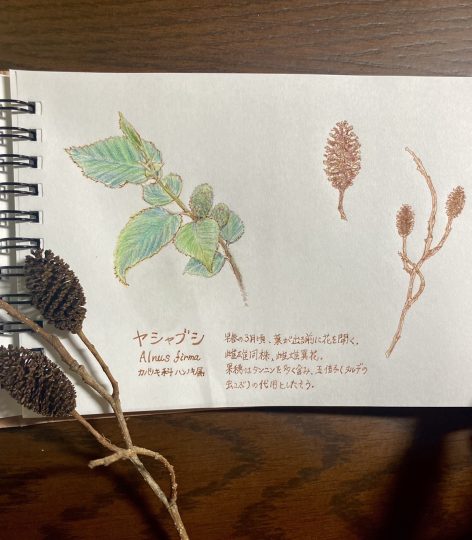 ヤシャブシ
Alnus firma
カバノキ科 ハンノキ属
早春の3月頃、葉が出る前に花を開く。
雌雄同株、雌雄異花。
果穂はタンニンを多く含み、五倍子(ヌルデの
虫こぶ)の代用としたそう。